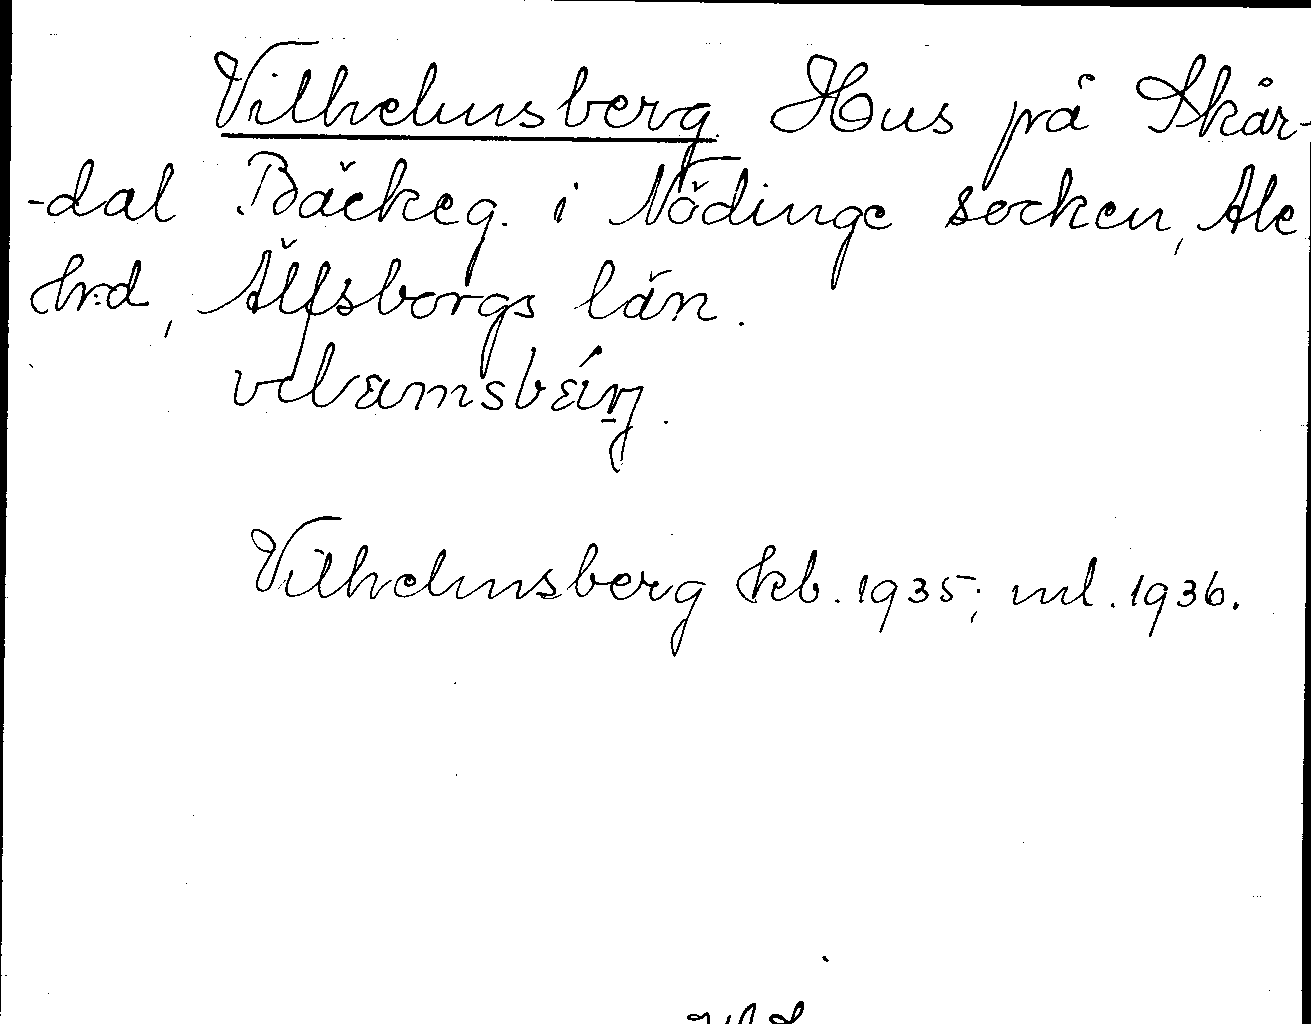 Vilhelmsberg Hus på Skår-
-dal Bäckeg. i Nödinge socken, Ale
hrd, Älfsborgs län.
Vilhelmsberg kb. 1935; ml. 1936.